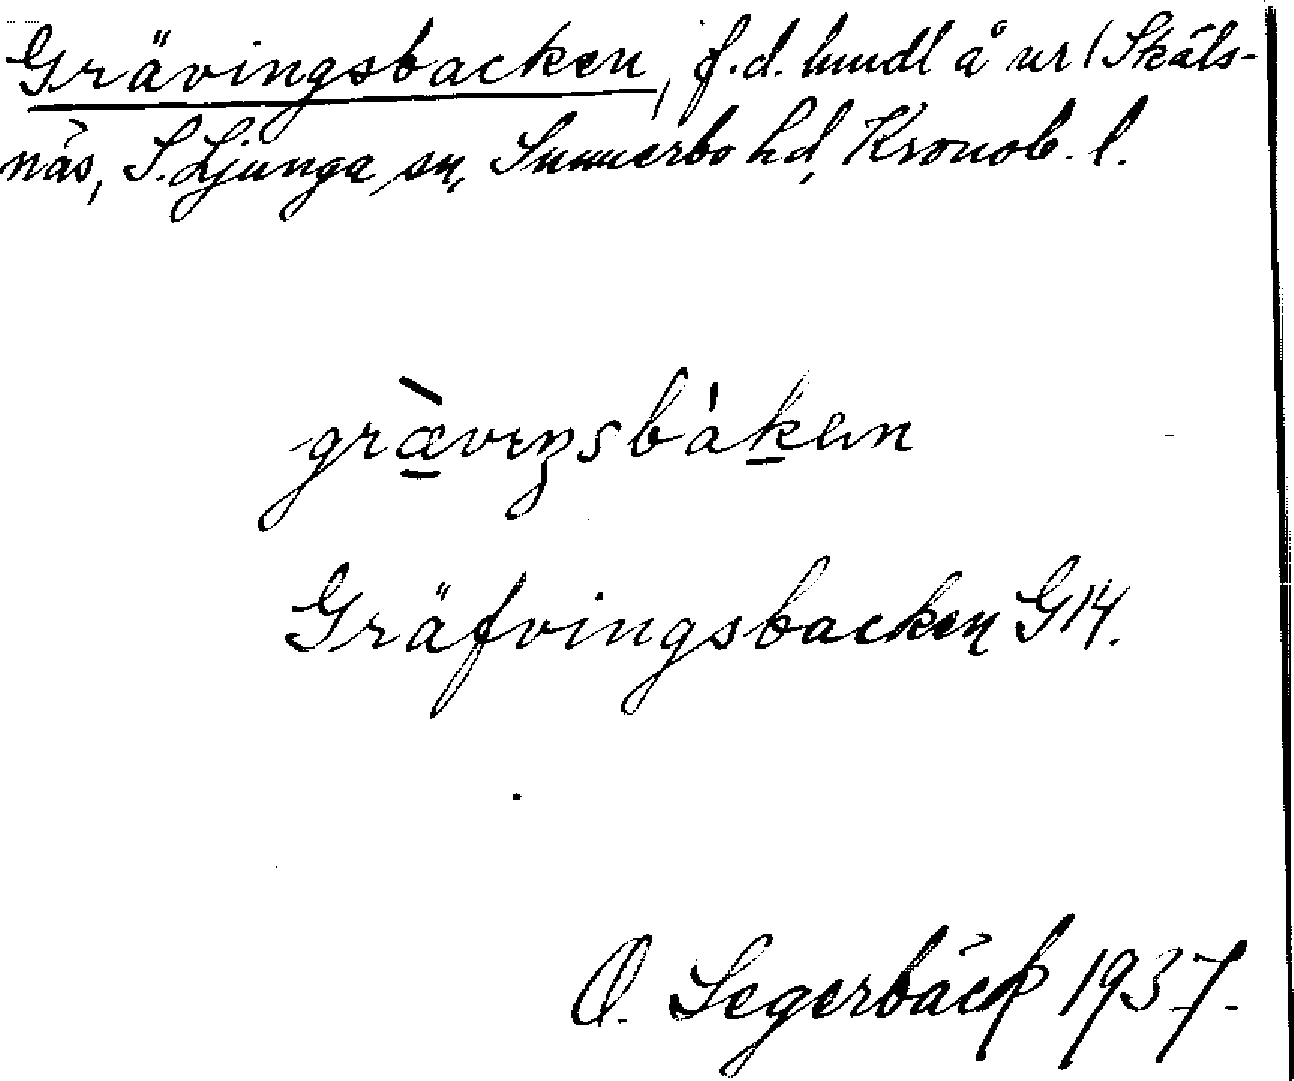 Grävingsbacken, f.d. lmdl å nr 1 Skäls-
näs, S. Ljunga sn, Sunnerbo hd, Kronob. l.
græ̀vıŋsbákɐn
Gräfvingsbacken G14.
O. Segerbäck 1937.